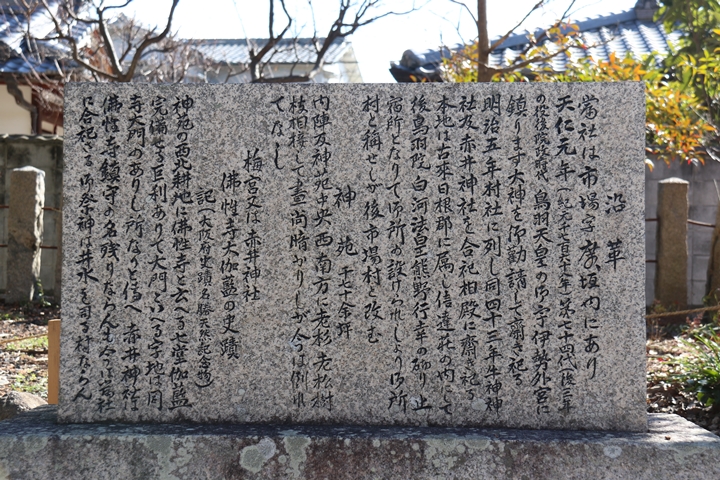 沿革
當社は市場字廣垣内にあり
天仁元年(紀元千七百六十八年)第七十四代(後三年
の役後院政時代)鳥羽天皇の御宇伊勢外宮に
鎮ります大神を御勧請して齋き祀る
明治五年村社に列し同四十三年牛神神
社及赤井神社を合祀相殿に齋き祀る
本地は古來日根郡に属し信達荘の内にして
後鳥羽院白河法皇熊野行幸の砌り止
宿所となりて御所の設けられしより御所
村と稱せしが後市場村と改む
神苑 千七十余坪
内陣及神苑中央西南方に老杉老松樹
枝相接して晝尚暗かりしが今は倒れ
てなし
梅宮又は赤井神社
佛性寺大伽藍の史蹟
記(大阪府史蹟名勝天然記念物)
神苑の西北耕地に佛性寺と云へる七堂伽藍
完備せる巨刹ありて大門といへる字地は同
寺大門のありし所なりと傳へ赤井神社は
佛性寺鎮守の名残りならんも今は當社
に合祀さる御祭神は井水を司る神ならん